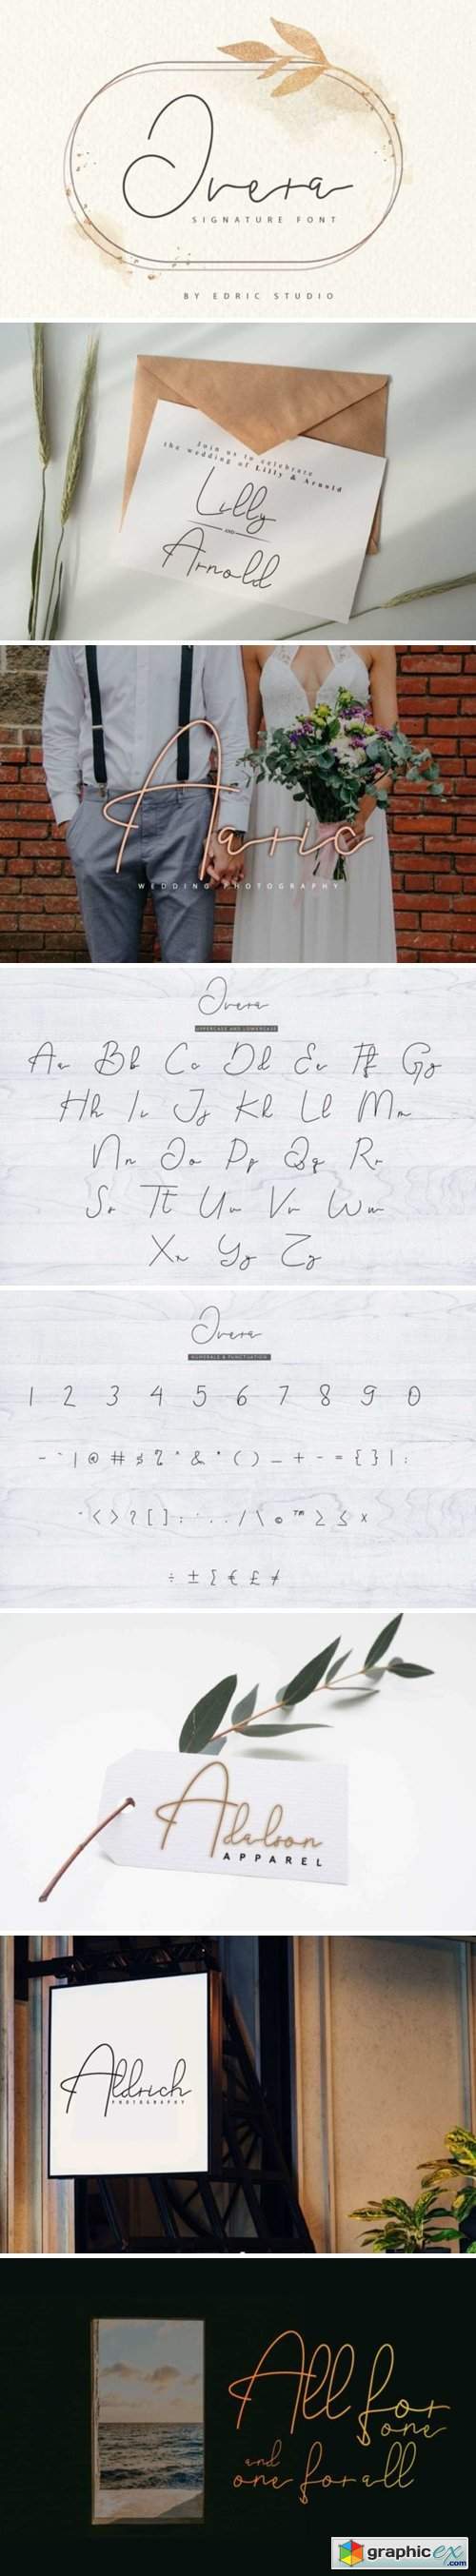 Overa
SIGNATURE FONT
BY EDRIC STUDIO
Join us to celebrate
the wedding of Lilly & Arnold
Lilly
AND
Arnold
Aaric
WEDDING PHOTOGRAPHY
Overa
UPPERCASE AND LOWERCASE
Aa Bb Cc Dd Ee Ff Gg
Hh Ii Jj Kk Ll Mm
Nn Oo Pp Qq Rr
Ss Tt Uu Vv Ww
Xx Yy Zz
Overa
NUMERALS & PUNCTUATION
1 2 3 4 5 6 7 8 9 0
- ~ | @ # $ % ^ & * ( ) _ + - = { } | :
< > ? [ ] : / \ © ™ ≥ ≤ x
÷ ± € £
Adalson
APPAREL
Aldrich
PHOTOGRAPHY
All for
one
and
one for all
graphicex
.com